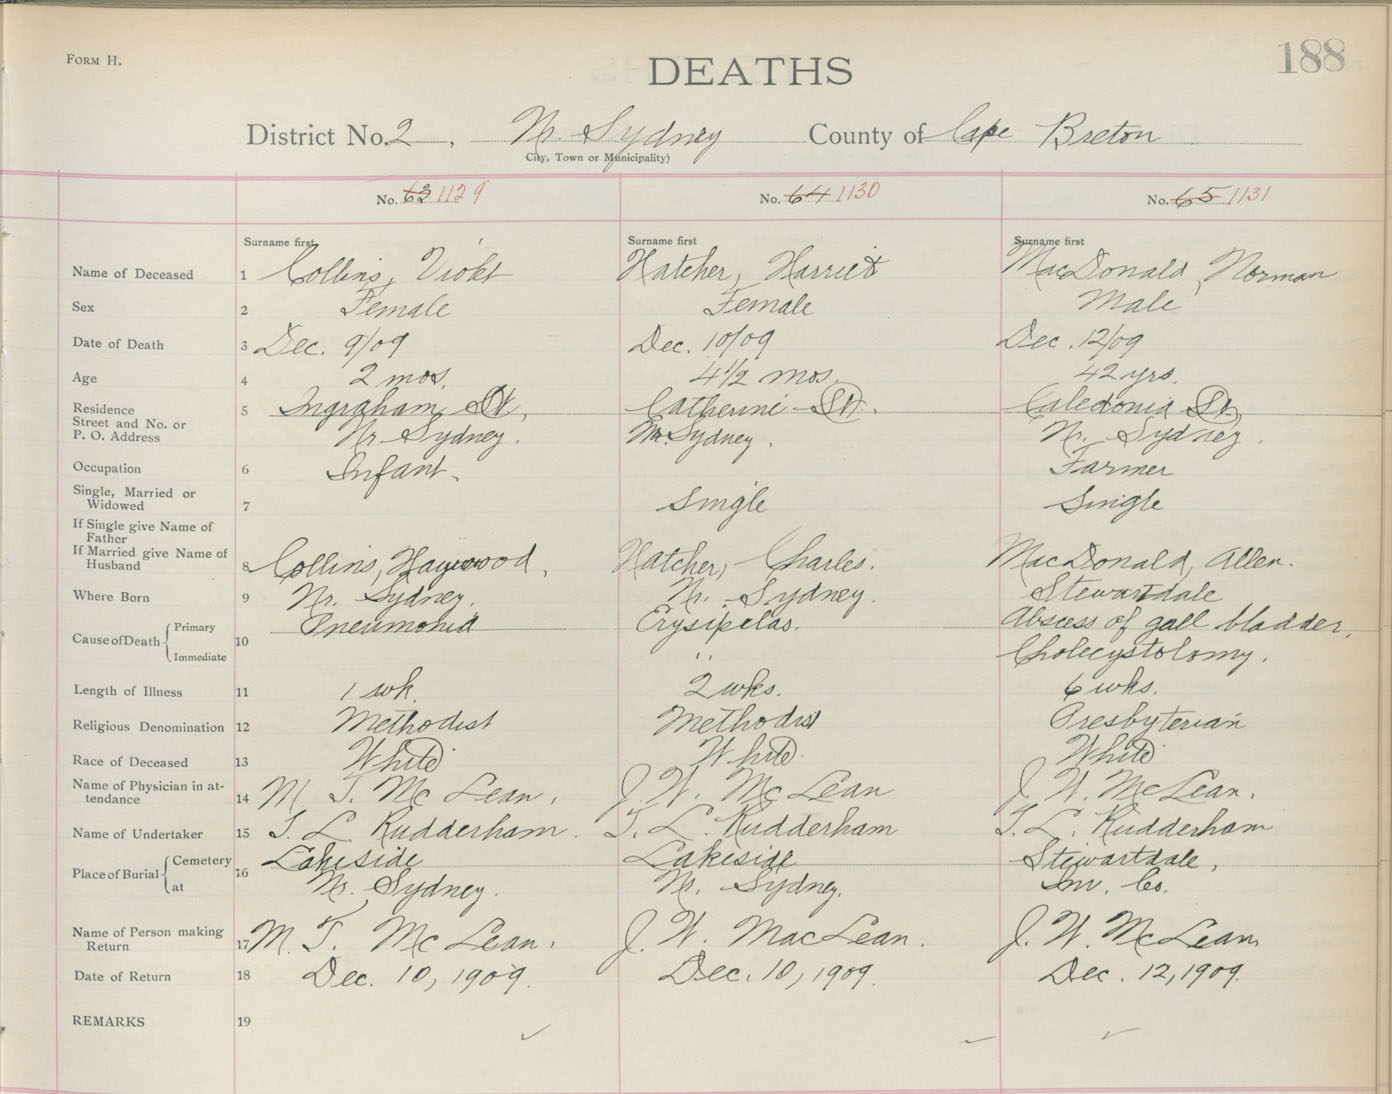 FORM H.
DEATHS
188
District No. 2, N. Sydney County of Cape Breton
City, Town or Municipality)
No. 63 1129 No. 64 1130 No. 65 1131
Surname first Surname first Surname first
Name of Deceased 1 Collins, Violet Hatcher, Harriet MacDonald, Norman
Sex 2 Female Female Male
Date of Death 3 Dec. 9/09 Dec. 10/09 Dec. 12/09
Age 4 2 mos. 4 1/2 mos. 42 yrs.
Residence 5 Ingraham St, Catherine St. Caledonia St,
Street and No. or
P. O. Address Nr. Sydney. Nr. Sydney. N. Sydney.
Occupation 6 Infant. Farmer
Single, Married or
Widowed 7 Single Single
If Single give Name of
Father
If Married give Name of
Husband 8 Collins, Haywood, Hatcher, Charles. MacDonald, Allen.
Where Born 9 Nr. Sydney. N. Sydney. Stewartdale
Cause of Death { Primary 10 Pneumonia Erysipelas. Abscess of gall bladder,
Immediate " Cholecystotomy.
Length of Illness 11 1 wk 2 wks. 6 wks.
Religious Denomination 12 Methodist Methodist Presbyterian
Race of Deceased 13 White White White
Name of Physician in at-
tendance 14 M. T. McLean. J. W. McLean J. W. McLean.
Name of Undertaker 15 T. L. Rudderham. T. L. Rudderham T. L. Rudderham
Place of Burial { Cemetery 16 Lakeside Lakeside Stewartdale,
at Nr. Sydney. N. Sydney. Inv. Co.
Name of Person making
Return 17 M. T. McLean. J. W. MacLean. J. W. McLean
Date of Return 18 Dec. 10, 1909. Dec. 10, 1909. Dec. 12, 1909.
REMARKS 19